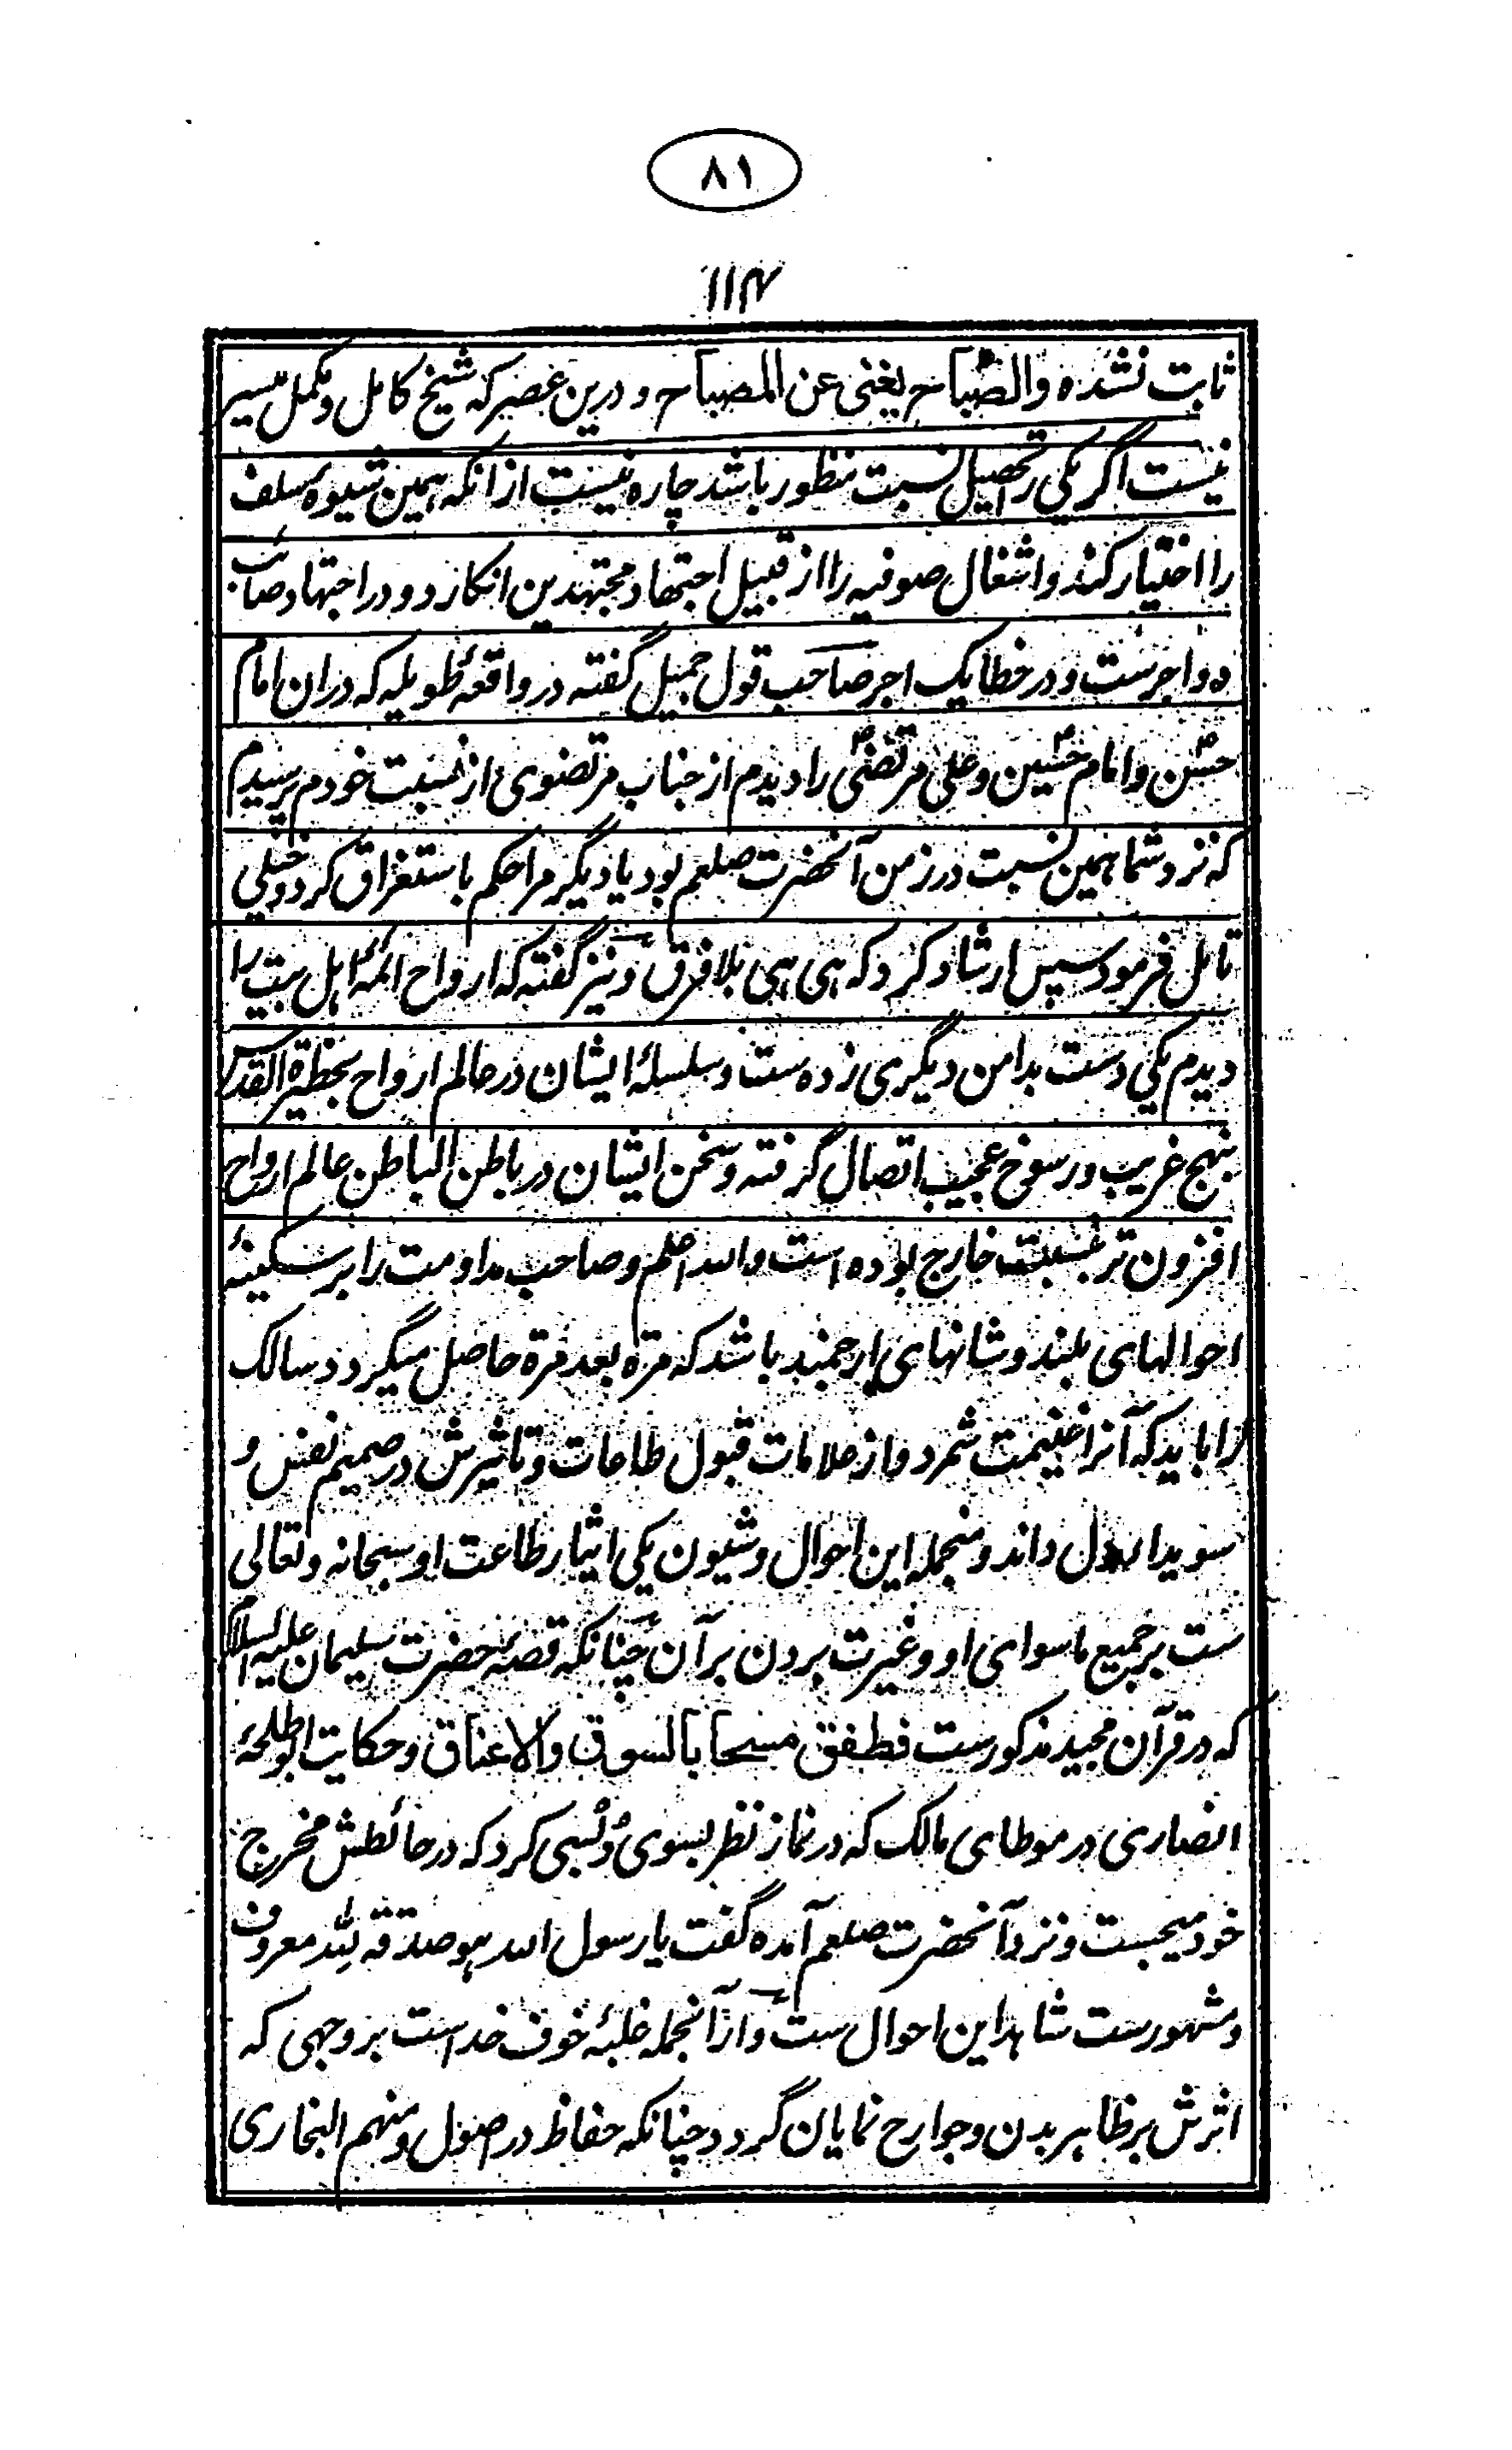 ۸۱
۱۱۴
ثابت نشده والصباح یغنی عن المصباح و درین عصر که شیخ کامل و مکمل میسر
نیست اگر یکی را تحصیل نسبت منظور باشد چاره نیست از انکه همین شیوهٔ سلف
را اختیار کند و اشغال صوفیه را از قبیل اجتهاد مجتهدین انکارد و در اجتهاد صائب
دو اجرست و در خطا یک اجر صاحب قول جمیل گفته در واقعهٔ طویله که دران امام
حسن و امام حسین و علی مرتضی را دیدم از جناب مرتضوی از نسبت خودم پرسیدم
که نزد شما همین نسبت در زمن آنحضرت صلعم بود یا دیگر مرا حکم باستغراق کرد و خیلی
تامل فرمود سپس ارشاد کرد که هی هی بلا فرق و نیز گفته که ارواح ائمهٔ اهل بیت را
دیدم یکی دست بدامن دیگری زده ست و سلسلهٔ ایشان در عالم ارواح بحظیرة القدس
بنهج غریب و رسوخ عجیب اتصال گرفته و سخن ایشان در باطن الباطن عالم ارواح
افزون تر نسبت خارج بوده است والله اعلم و صاحب مداومت را بر سکینهٔ
احوالهای بلند و شانهای ارجمند باشد که مرة بعد مرة حاصل میگردد سالک
را باید که آنرا غنیمت شمرد و از علامات قبول طاعات و تاثیرش در صمیم نفس و
سویدای دل داند و منجمله این احوال و شیون یکی ایثار طاعت او سبحانه و تعالی
ست بر جمیع ماسوای او و غیرت بردن بر آن چنانکه قصهٔ حضرت سلیمان علیه السلام
که در قرآن مجید مذکورست فطفق مسحا بالسوق والاعناق و حکایت ابو طلحهٔ
انصاری در موطای مالک که در نماز نظر بسوی دُبسی کرد که در حائطش مخرج
خود میجست و نزد آنحضرت صلعم آمده گفت یا رسول الله هو صدقة لله معروف
و مشهورست شاهد این احوال ست و ازآنجمله غلبهٔ خوف خداست بر وجهی که
اثرش بر ظاهر بدن و جوارح نمایان گردد چنانکه حفاظ در اصول و منهم البخاری